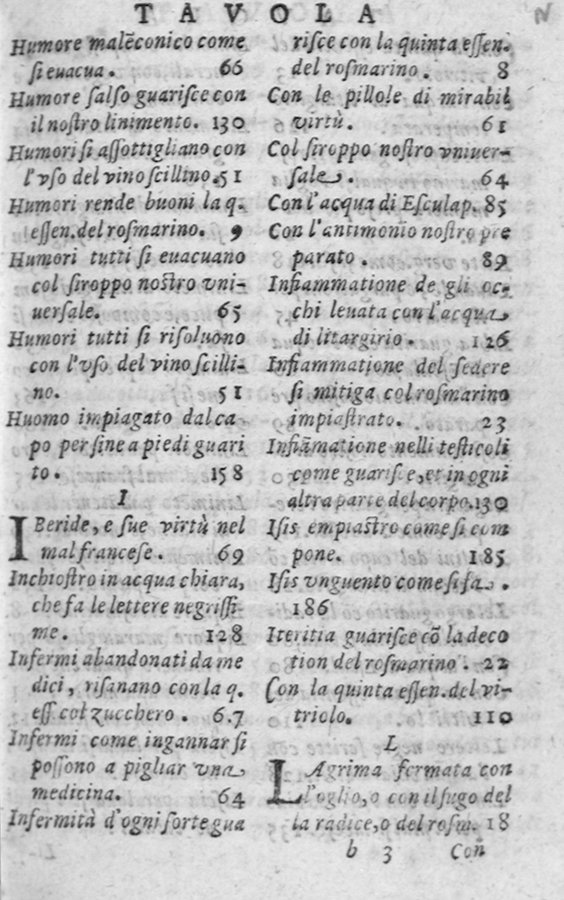 TAVOLA
Humore malēconico come
si euacua. 66
Humore salso guarisce con
il nostro linimento. 130
Humori si assottigliano con
l'vso del vino scillino. 51
Humori rende buoni la q.
essen. del rosmarino. 9
Humori tutti si euacuano
col siroppo nostro vni-
uersale. 65
Humori tutti si risoluono
con l'vso del vino scilli-
no. 51
Huomo impiagato dal ca
po per sine a piedi guari
to. 158
I
IBeride, e sue virtù nel
mal francese. 69
Inchiostro in acqua chiara,
che fa le lettere negrissi
me. 128
Infermi abandonati da me
dici, risanano con la q.
ess col zucchero. 6.7
Infermi come ingannar si
possono a pigliar vna
medicina. 64
Infermità d'ogni sorte gua
risce con la quinta essen.
del rosmarino. 8
Con le pillole di mirabil
virtù. 61
Col siroppo nostro vniuer-
sale. 64
Con l'acqua di Esculap. 85
Con l'antimonio nostro pre
parato. 89
Infiammatione de gli oc-
chi leuata con l'acqua
di litargirio. 126
Infiammatione del sedere
si mitiga col rosmarino
impiastrato. 23
Infiāmatione nelli testicoli
come guarisce, et in ogni
altra parte del corpo. 130
Isis empiastro come si com
pone. 185
Isis vnguento come si fa.
186
Iteritia guarisce cō la deco
tion del rosmarino. 22
Con la quinta essen. del vi-
triolo. 110
L
LAgrima fermata con
l'oglio, o con il sugo del
la radice, o del rosm. 18
b 3 Con